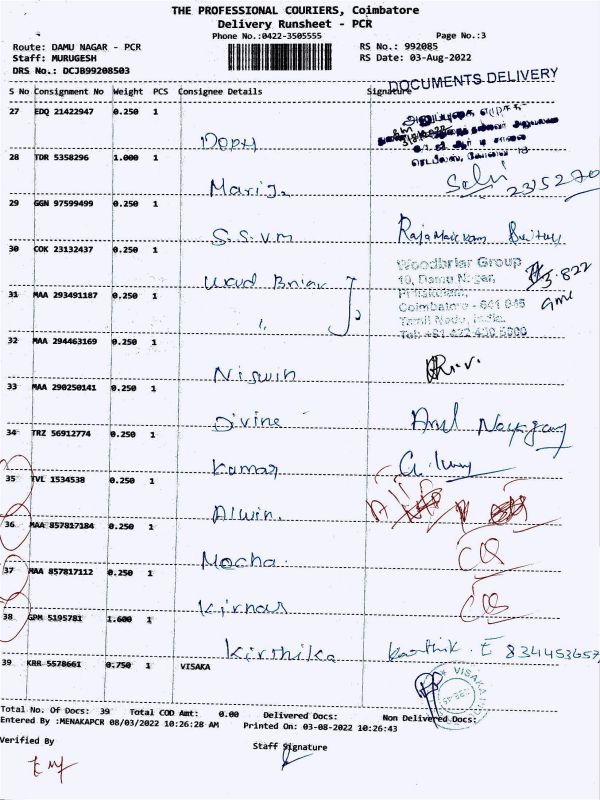 THE PROFESSIONAL COURIERS, Coimbatore
Delivery Runsheet - PCR
Phone No.:0422-3505555 Page No.:3
Route: DAMU NAGAR - PCR RS No.: 992085
Staff: MURUGESH RS Date: 03-Aug-2022
DRS No.: DCJB99208503
DOCUMENTS DELIVERY
S No Consignment No Weight PCS Consignee Details Signature
27 EDQ 21422947 0.250 1
28 TDR 5358296 1.000 1
Maria
Selvi 2315270
29 GGN 97599499 0.250 1
S.S.V.M
30 COK 23132437 0.250 1
Woodbriar Group
10, Damu Nagar,
31 MAA 293491187 0.250 1
Coimbatore - 641 045
Tamil Nadu, India.
Tel: +91 422 430 5000
32 MAA 294463169 0.250 1
Niswin
33 MAA 290250141 0.250 1
Divine
34 TRZ 56912774 0.250 1
Kumar
35 TVL 1534538 0.250 1
Alwin.
36 MAA 857817184 0.250 1
Mocha
37 MAA 857817112 0.250 1
Kirnas
38 GPM 5195781 1.600 1
Kirthika Karthik . E
39 KRR 5578661 0.750 1 VISAKA
VISAKA
Total No. Of Docs: 39 Total COD Amt: 0.00 Delivered Docs: Non Delivered Docs:
Entered By :MENAKAPCR 08/03/2022 10:26:28 AM Printed On: 03-08-2022 10:26:43
Verified By Staff Signature